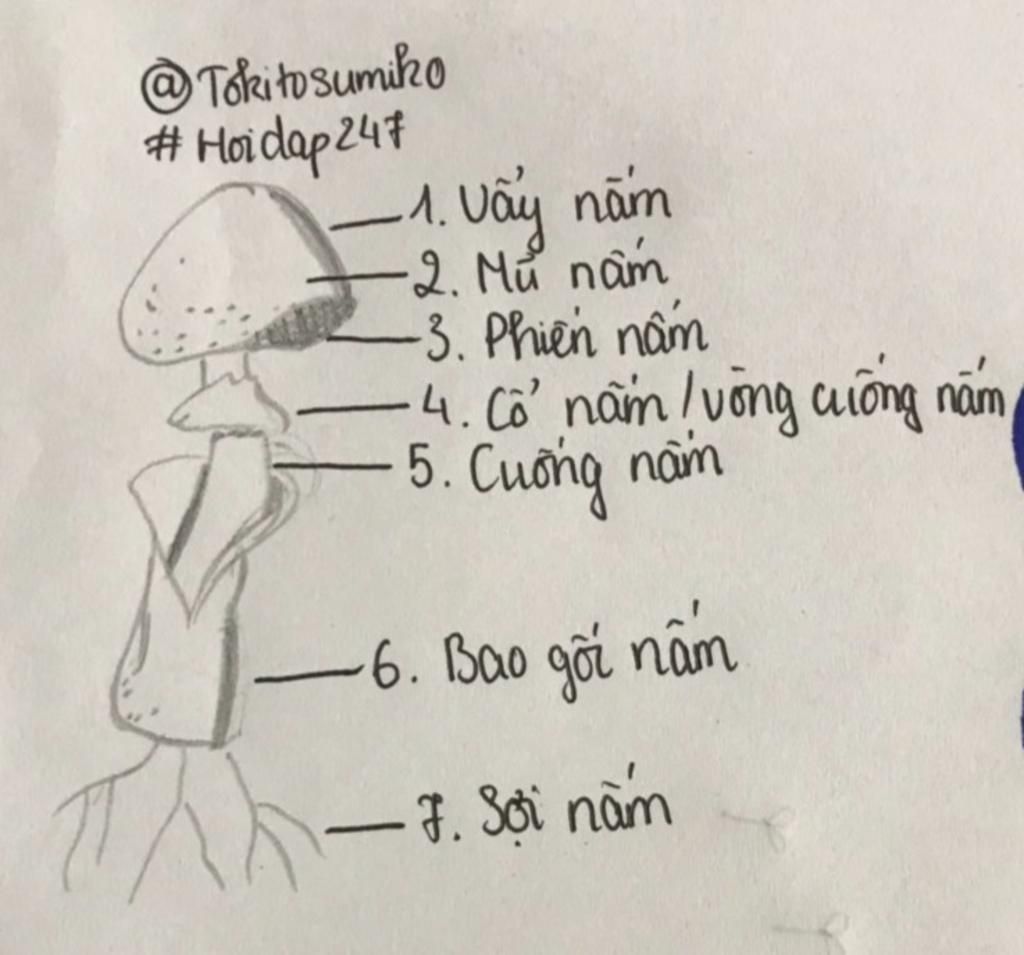 @Tokitosumiko
#Hoidap247
1. Vẩy nấm
2. Mũ nấm
3. Phiến nấm
4. Cổ nấm / vòng cuống nấm
5. Cuống nấm
6. Bao gối nấm
7. Sợi nấm